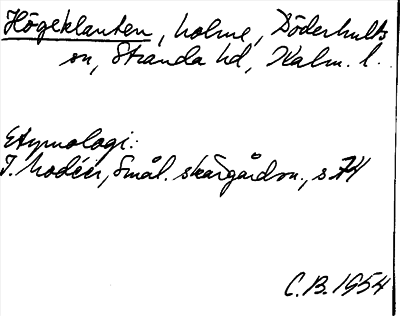 Högeklanten, holme, Döderhults
sn, Stranda hd, Kalm. l.
Etymologi:
I. Modéer, Smål. skärgårdsn., s 74
C.B. 1954